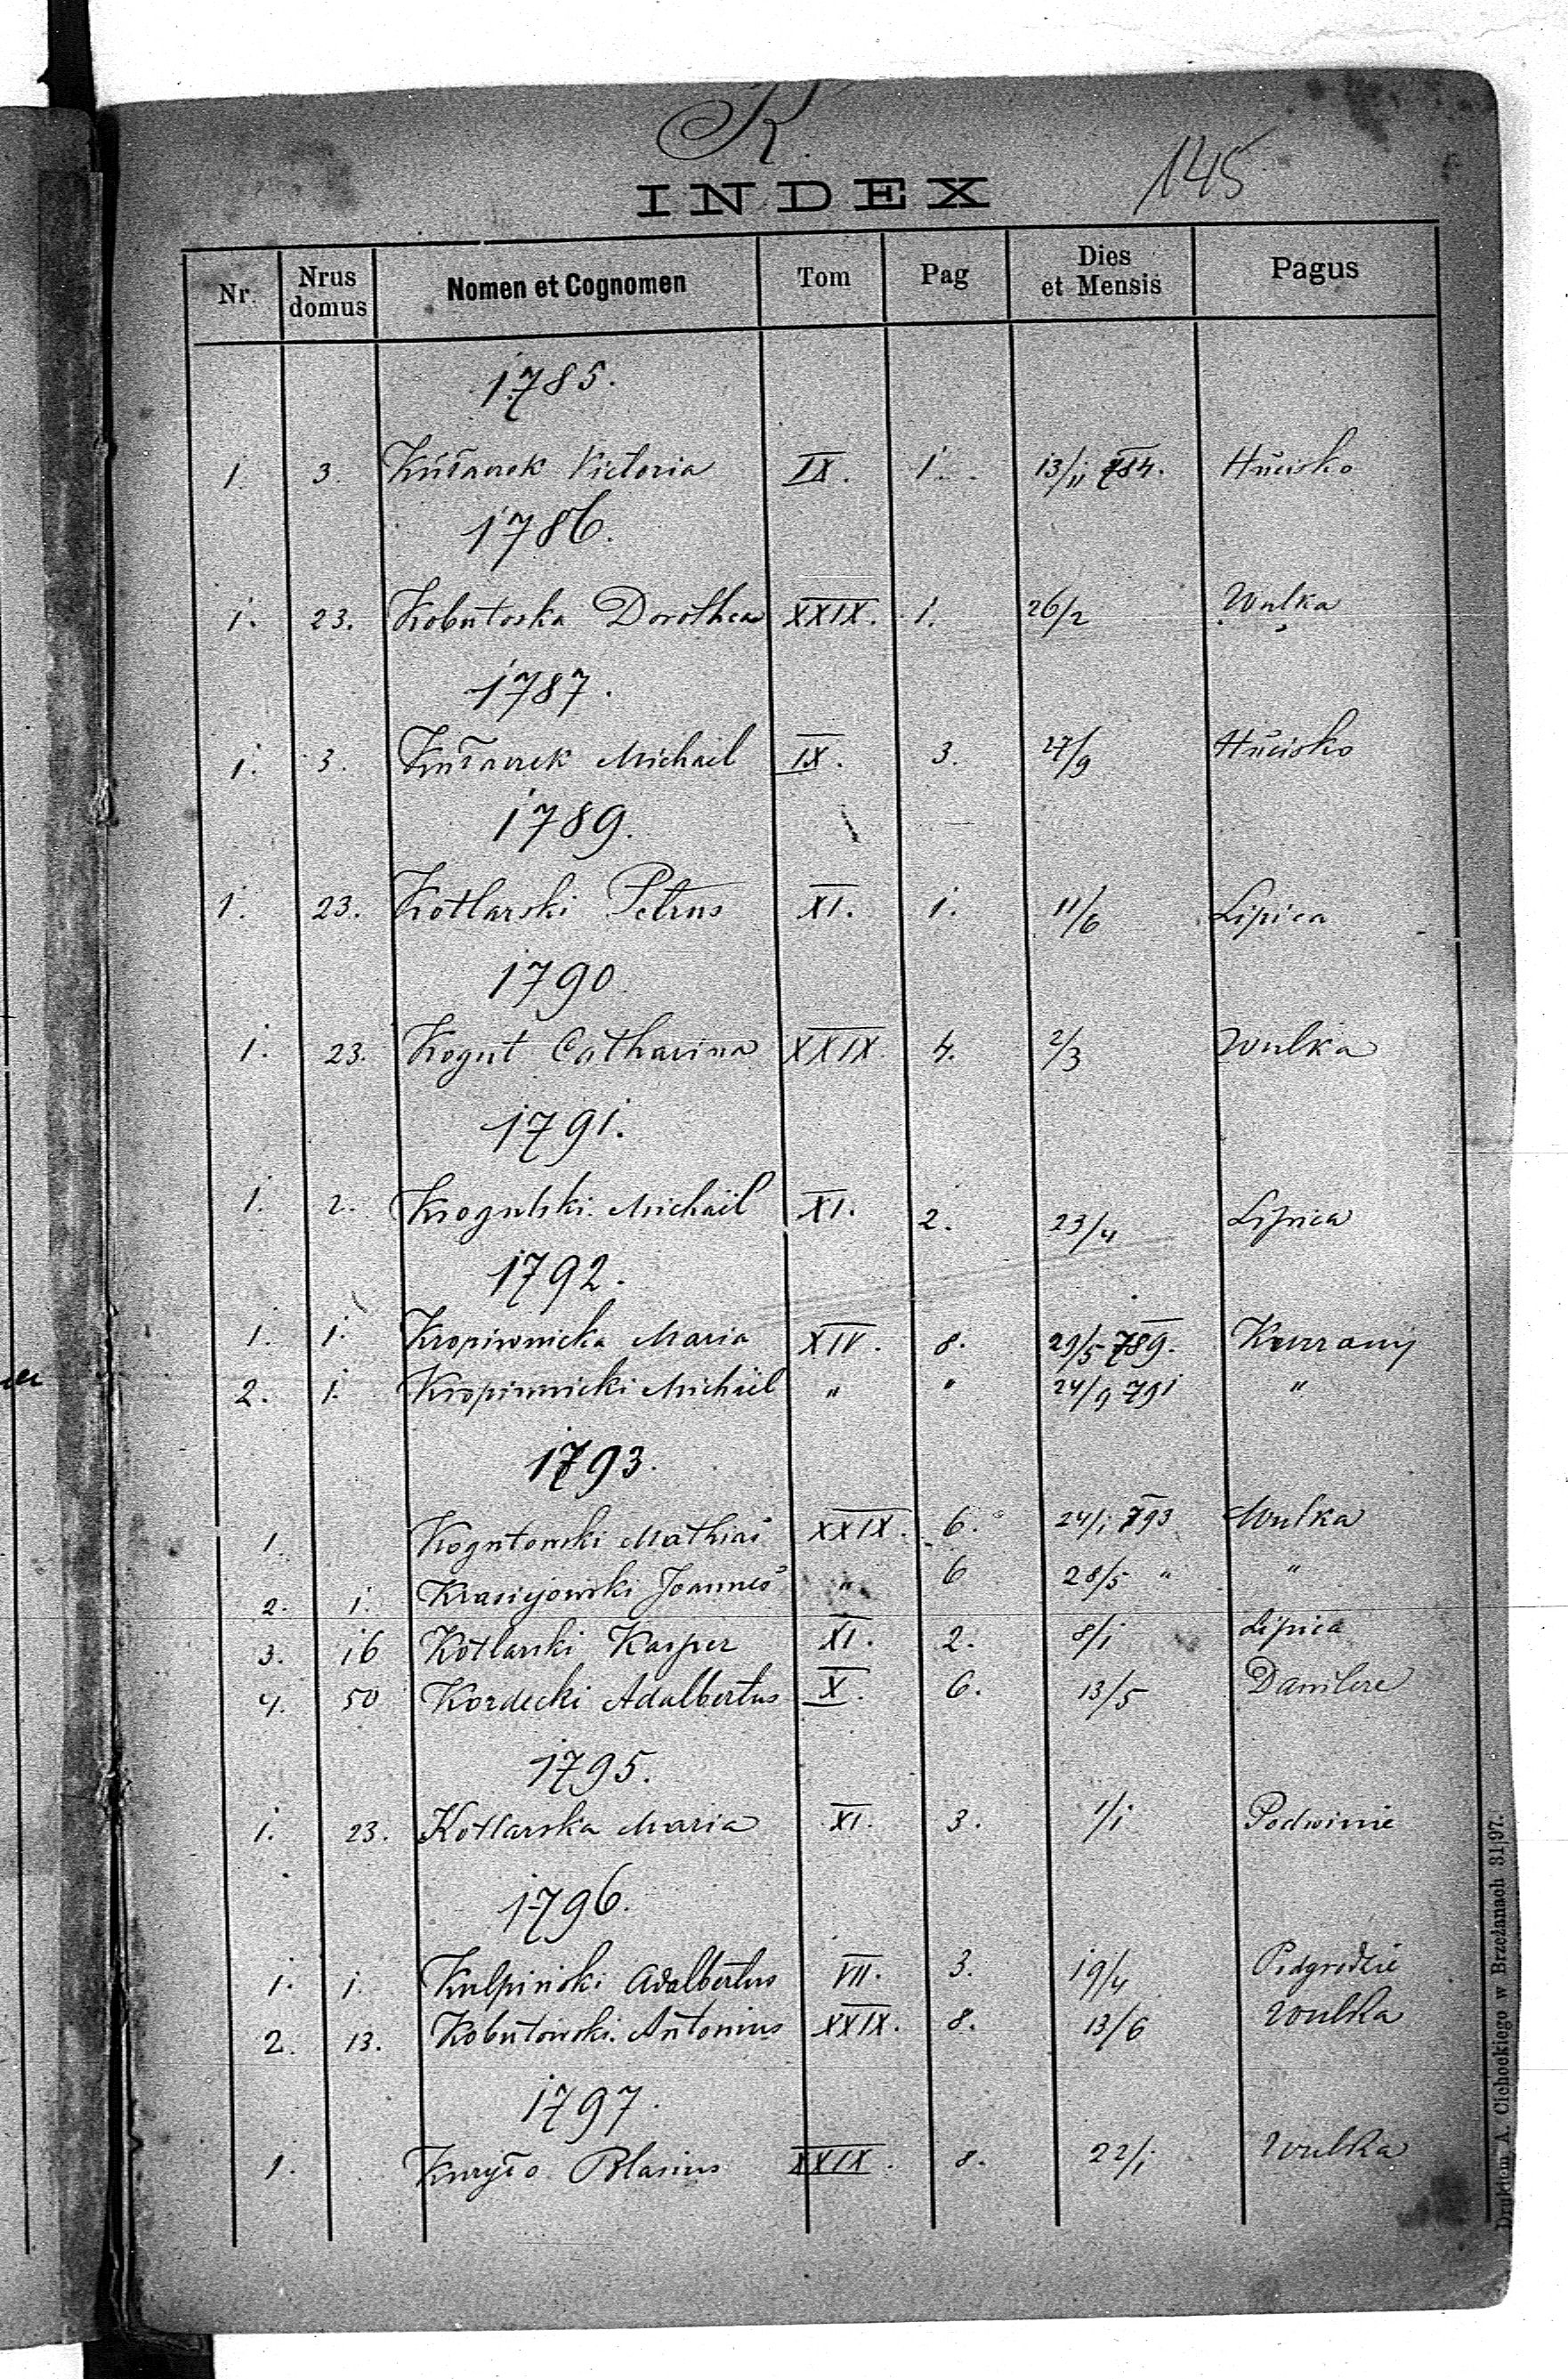 K.
INDEX 145
Nr. Nrus domus Nomen et Cognomen Tom Pag Dies et Mensis Pagus
1785.
1. 3. Victoria IX. 1. 13/11 784. Hucisko
1786.
1. 23. Kobutoska Dorothea XXIX. 1. 26/2 Wulka
1787.
1. 3. Michael IX. 3. 27/9 Hucisko
1789.
1. 23. Kotlarski Petrus XI. 1. 11/6 Lipica
1790.
1. 23. Kogut Catharina XXIX. 4. 2/3 Wulka
1791.
1. 2. Krogulski Michaël XI. 2. 23/4 Lipica
1792.
1. 1. Kropiwnicka Maria XIV. 8. 29/5 789.
2. 1. Kropiwnicki Michaël " " 24/9 791 "
1793.
1. Kogutowski Mathias XXIX. 6. 24/1 793 Wulka
2. 1. Krasiejowski Joannes " 6 28/5 " "
3. 16 Kotlarski Kasper XI. 2. 8/1 Lipica
4. 50 Kordecki Adalbertus X. 6. 13/5
1795.
1. 23. Kotlarska Maria XI. 3. 1/1 Podwinie
1796.
1. 1. Kulpiński Adalbertus VII. 3. 19/4 Podgrodzie
2. 13. Kobutowski Antonius XXIX. 8. 13/6 Wulka
1797.
1. Blasius XXIX. 8. 22/1 Wulka
Drukiem A. Cichockiego w Brzeżanach 31|97.